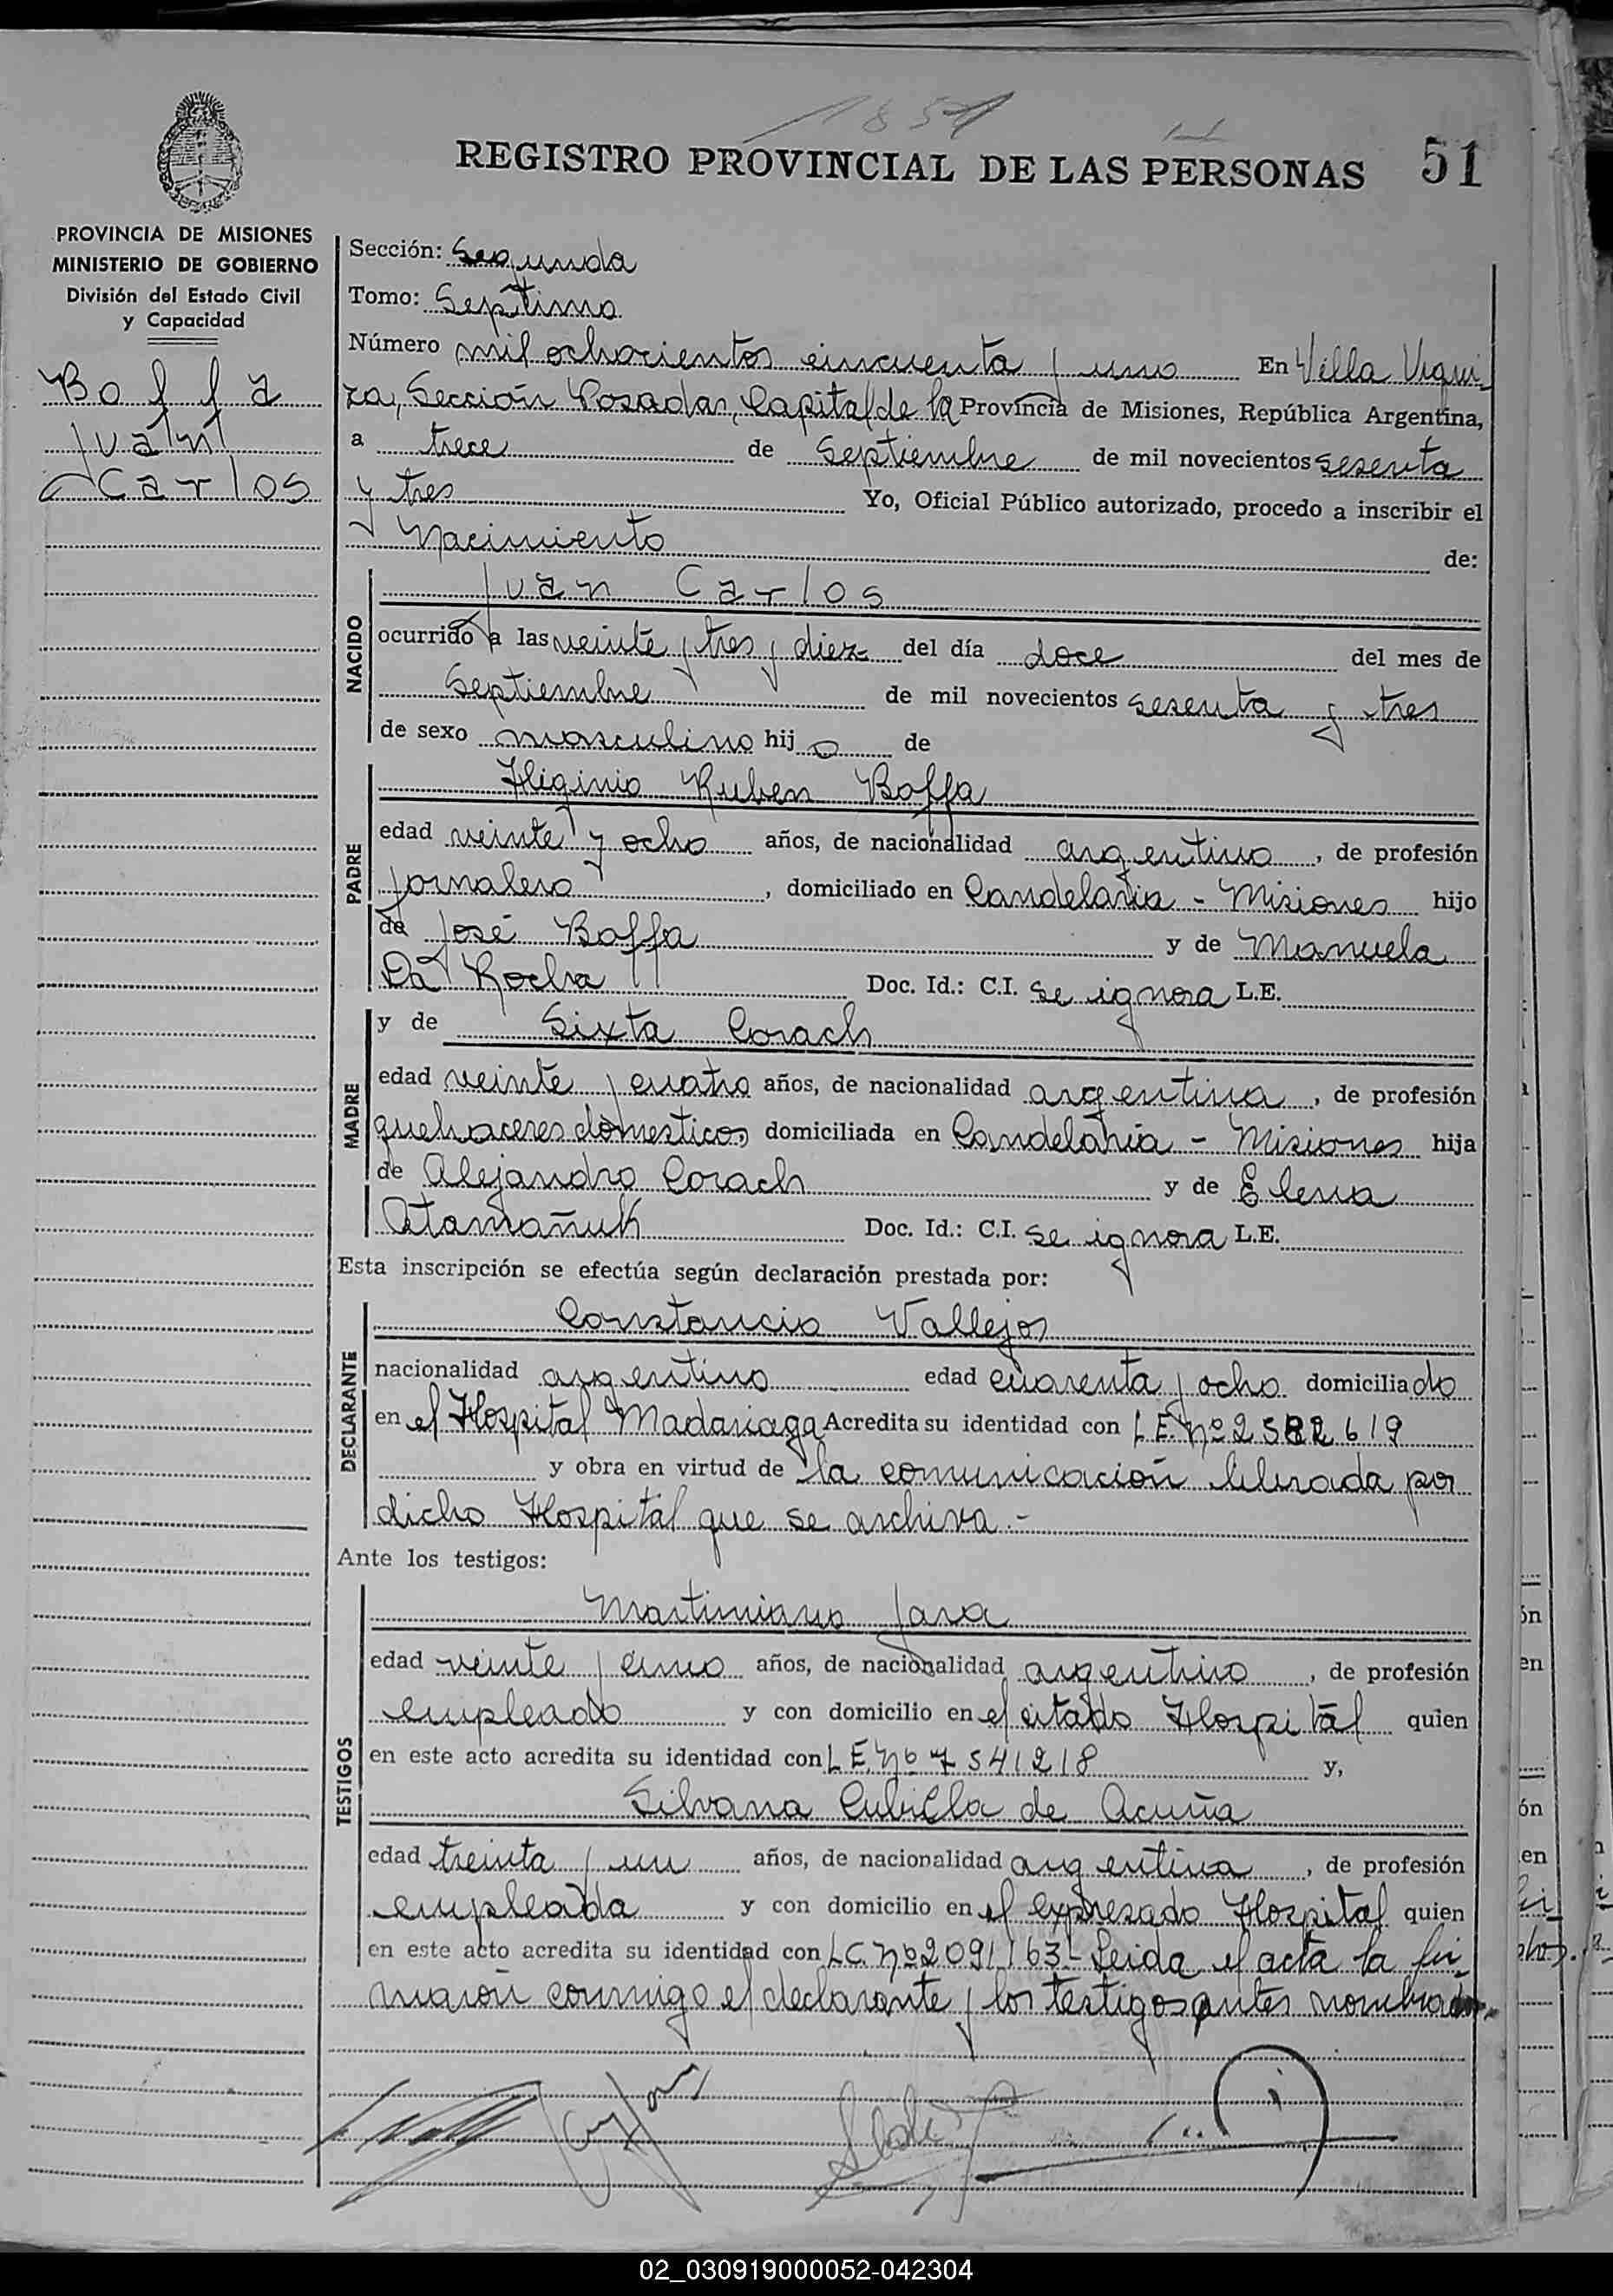 1851
REGISTRO PROVINCIAL DE LAS PERSONAS 51
PROVINCIA DE MISIONES
MINISTERIO DE GOBIERNO
División del Estado Civil
y Capacidad
Boffa
Juan
Carlos
Sección: Segunda
Tomo: Septimo
Número mil ochocientos cincuenta y uno En Villa Urqui-
za, Sección Posadas, Capital de la Provincia de Misiones, República Argentina,
a trece de Septiembre de mil novecientos sesenta
y tres Yo, Oficial Público autorizado, procedo a inscribir el
Nacimiento de:
NACIDO
Juan Carlos
ocurrido a las veinte y tres y diez del día doce del mes de
Septiembre de mil novecientos sesenta y tres
de sexo masculino hijo de
PADRE
Higinio Ruben Boffa
edad veinte y ocho años, de nacionalidad argentino, de profesión
jornalero, domiciliado en Candelaria - Misiones hijo
de José Boffa y de Manuela
Da Rocha Doc. Id.: C.I. se ignora L.E.
MADRE
y de Sixta Corach
edad veinte y cuatro años, de nacionalidad argentina, de profesión
quehaceres domesticos domiciliada en Candelaria - Misiones hija
de Alejandro Corach y de Elena
Atamañuk Doc. Id.: C.I. se ignora L.E.
Esta inscripción se efectúa según declaración prestada por:
DECLARANTE
Constancio Vallejos
nacionalidad argentino edad cuarenta y ocho domiciliado
en el Hospital Madariaga Acredita su identidad con L.E. Nº 2582619
y obra en virtud de la comunicación librada por
dicho Hospital que se archiva.-
Ante los testigos:
TESTIGOS
Martiniano Jara
edad veinte y cinco años, de nacionalidad argentino, de profesión
empleado y con domicilio en el citado Hospital quien
en este acto acredita su identidad con L.E. Nº 7541218 y,
Silvana Cubilla de Acuña
edad treinta y un años, de nacionalidad argentina, de profesión
empleada y con domicilio en el expresado Hospital quien
en este acto acredita su identidad con L.C. Nº 2091163- Leida el acta la fir-
maron conmigo el declarante y los testigos antes nombrados.
02_030919000052-042304